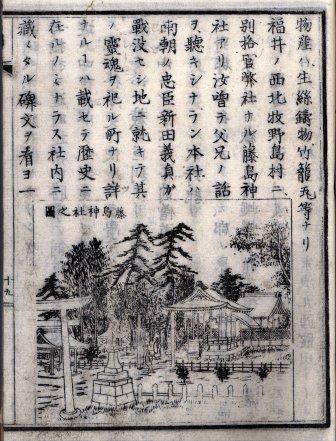 物産ハ生絲鑄物竹籠瓦等ナリ
福井ノ西北牧野島村ニ
別格官幣社ナル藤島神
社アリ汝曽テ父兄ノ話
ヲ聽キシナラン本社ハ
南朝ノ忠臣新田義貞ガ
戰没セシ地ニ就キテ其
ノ靈魂ヲ祀ル所ナリ詳
ナルハ載セテ歴史ニ
在ルノミナラス社内ニ
藏メタル碑文ヲ看ヨ一
藤島神社之圖
十九